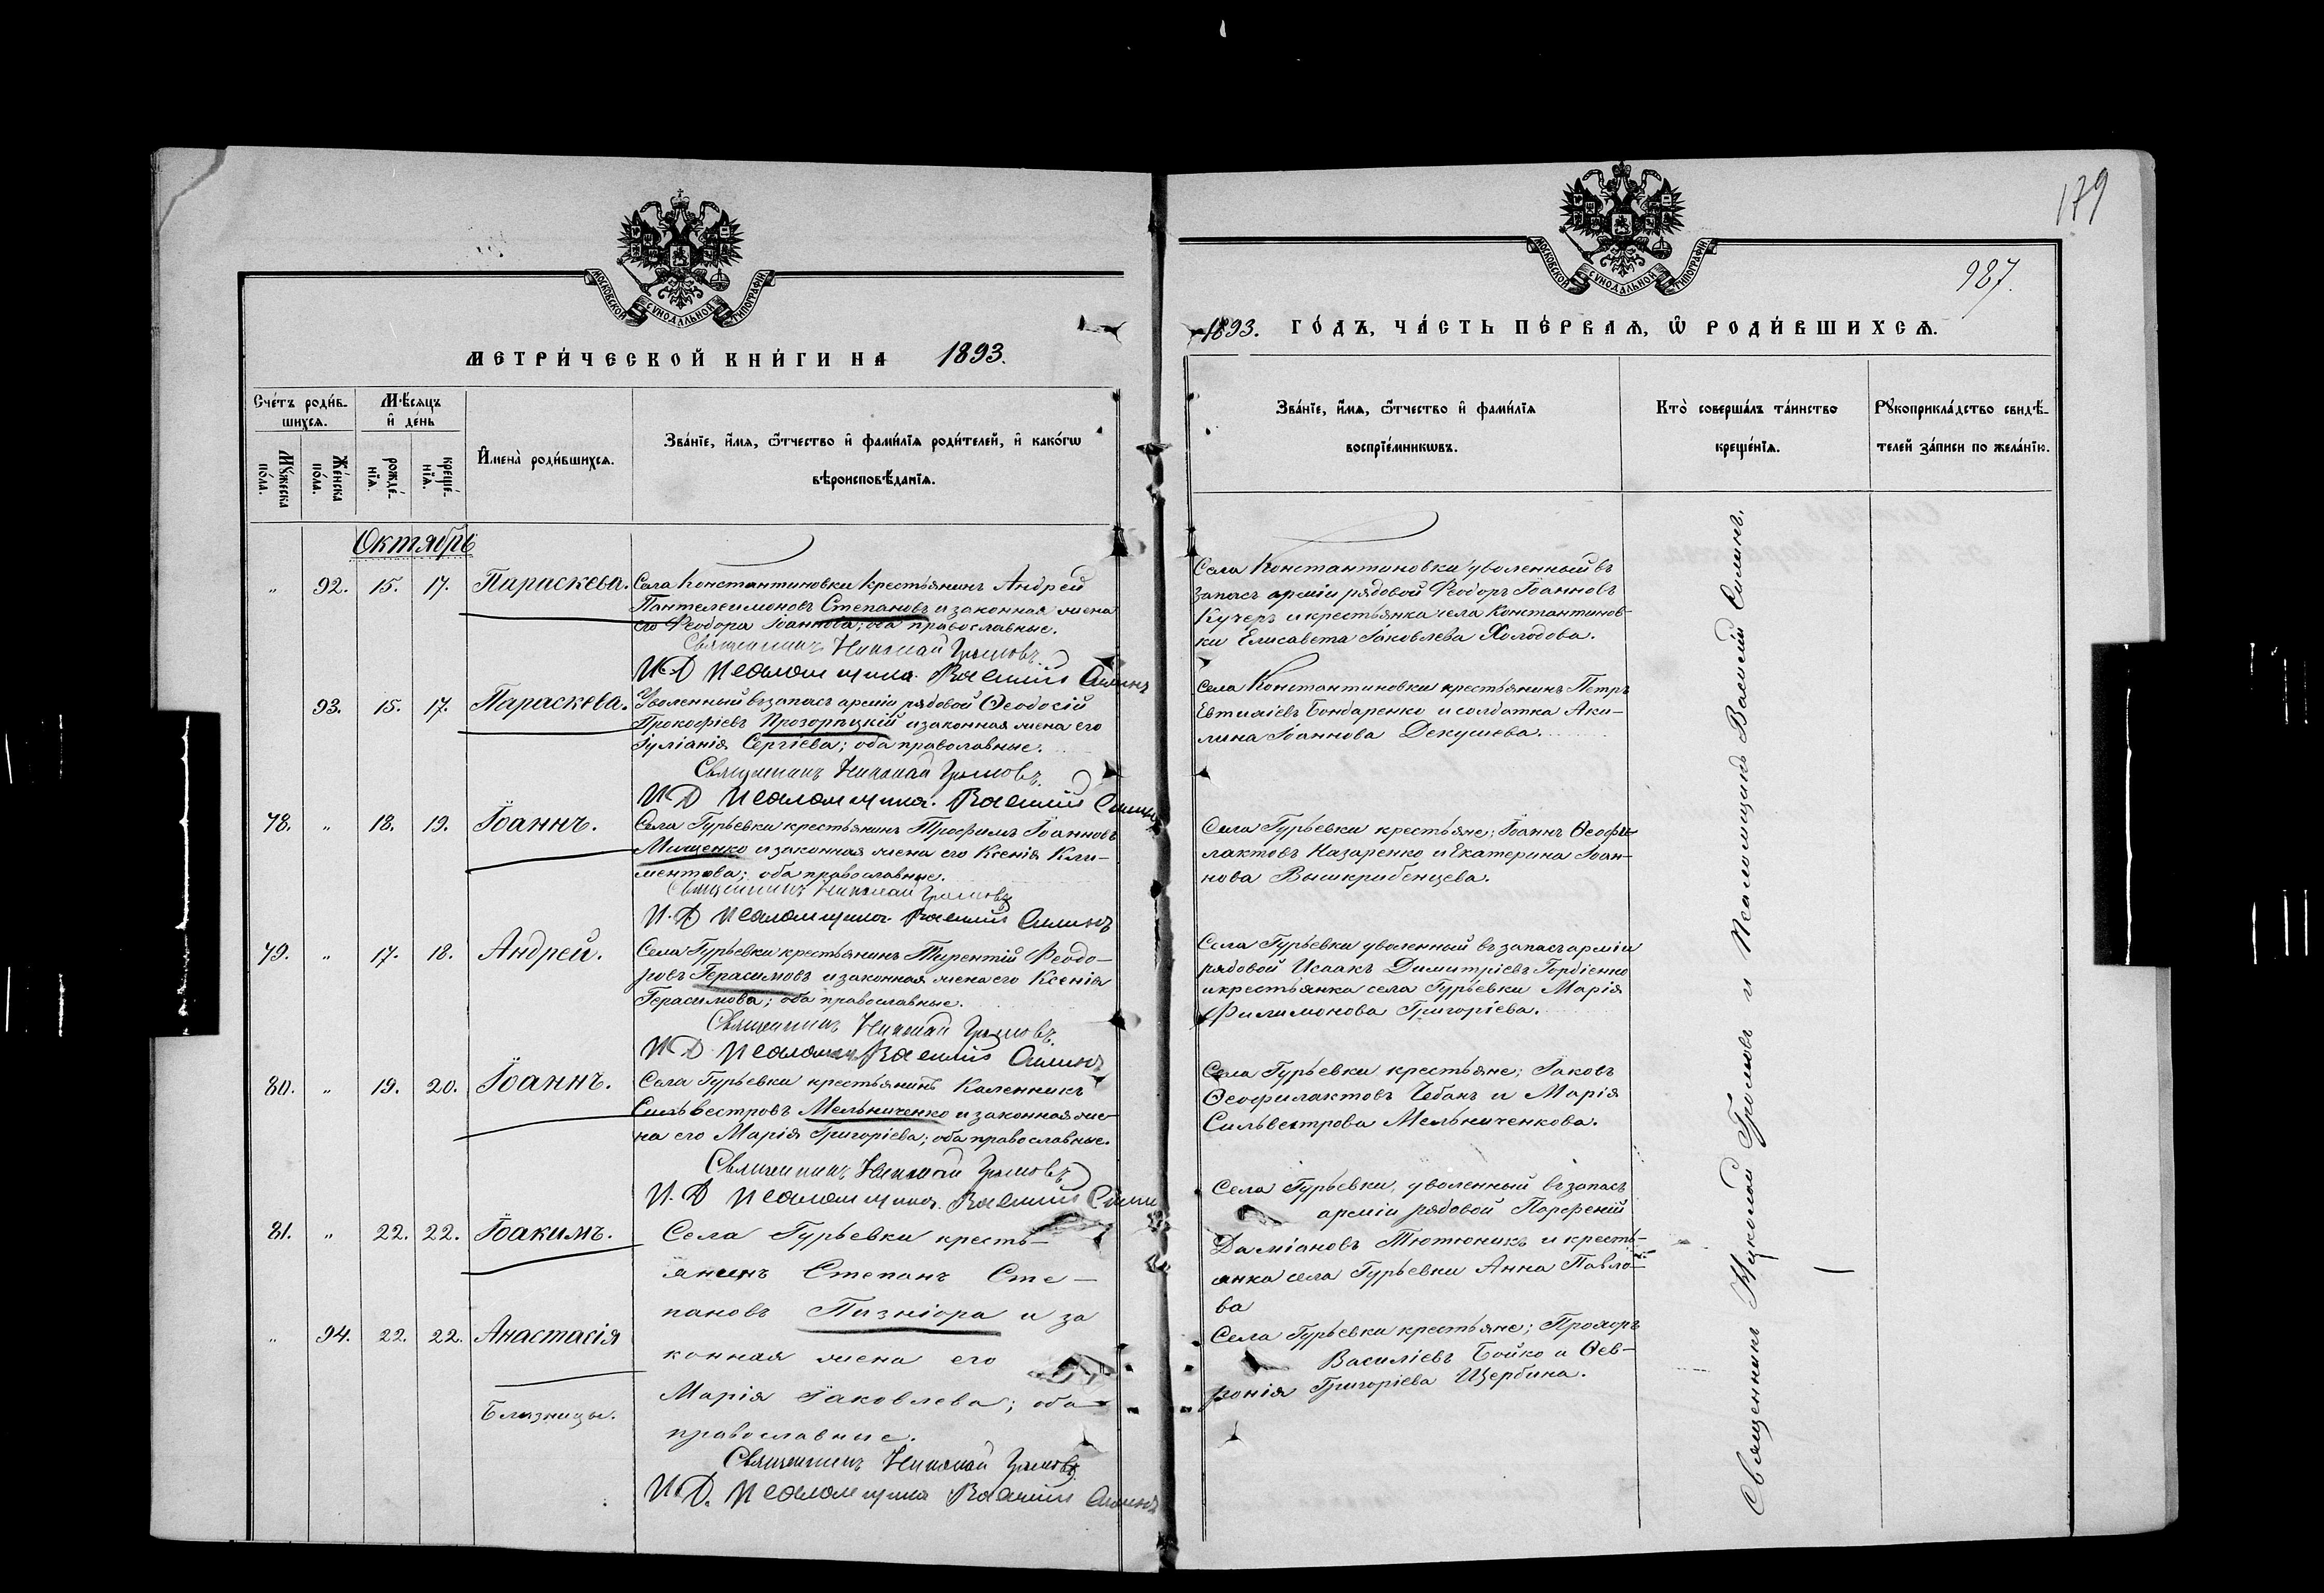 179
987.
МОСКОВСКОЙ СѴНОДАЛЬНОЙ ТИПОГРАФІИ
МЕТРИ́ЧЕСКОЙ КНИ́ГИ НА 1893.
Сче́тъ роди́в-
шихсѧ.
Мѣ́сѧцъ
и҆ де́нь
Мꙋ́жеска
по́ла.
Же́нска
по́ла.
рожде́-
нїѧ.
креще́-
нїѧ.
И҆мена̀ роди́вшихсѧ.
Зва́нїе, и҆́мѧ, ѻ҆́тчество и҆ фами́лїѧ роди́телей, и҆ како́гѡ
вѣроисповѣ́данїѧ.
Октябрь
" 92. 15. 17. Параскева.
Села Константиновки крестьянинъ Андрей
Пантелеимоновъ Степановъ и законная жена
его Ѳеодора Іоаннова; оба православные.
Священникъ Николай Громовъ.
И. Д. Псаломщика Василій Симинъ
93. 15. 17. Параскева.
Уволенный въ запасъ арміи рядовой Ѳеодосій
Прокофіевъ Прозорецкій и законная жена его
Іуліанія Сергіева; оба православные.
Священникъ Николай Громовъ.
И. Д. Псаломщика. Василій Симинъ
78. " 18. 19. Іоаннъ.
Села Гурьевки крестьянинъ Трофимъ Іоанновъ
Мищенко и законная жена его Ксенія Кли-
ментова; оба православные.
Священникъ Николай Громовъ
И. Д. Псаломщика. Василій Симинъ
79. " 17. 18. Андрей.
Села Гурьевки крестьянинъ Терентій Ѳеодо-
ровъ Герасимовъ и законная жена его Ксенія
Герасимова; оба православные.
Священникъ Николай Громовъ.
И. Д. Псаломщ Василій Симинъ
80. " 19. 20. Іоаннъ.
Села Гурьевки крестьянинъ Каленникъ
Сильвестровъ Мельниченко и законная же-
на его Марія Григоріева; оба православные.
Священникъ Николай Громовъ
И. Д. Псаломщика. Василій Симин
81. " 22. 22. Іоакимъ.
" 94. 22. 22. Анастасія
Близнецы.
Села Гурьевки кресть-
янинъ Степанъ Сте-
пановъ Пизніора и за
конная жена его
Марія Іаковлева; оба
православные.
Священникъ Николай Громовъ
И. Д. Псаломщика Василій Симинъ
МОСКОВСКОЙ СѴНОДАЛЬНОЙ ТИПОГРАФІИ
1893. ГО́ДЪ, ЧА́СТЬ ПЕ́РВАѦ, Ѡ҆ РОДИ́ВШИХСѦ.
Зва́нїе, и҆́мѧ, ѻ҆́тчество и҆ фами́лїѧ
воспрїе́мникѡвъ.
Кто̀ соверша́лъ та́инство
креще́нїѧ.
Рꙋкоприкла́дство свидѣ́-
телей за́писи по жела́нїю.
Села Константиновки уволенный въ
запасъ арміи рядовой Ѳеодоръ Іоанновъ
Кучеръ и крестьянка села Константинов-
ки Елисавета Іаковлева Холодова.
Села Константиновки крестьянинъ Петръ
Евтихіевъ Бондаренко и солдатка Аки-
лина Іоаннова Декушева.
Села Гурьевки крестьяне; Іоаннъ Ѳеофи-
лактовъ Назаренко и Екатерина Іоан-
нова Вышкрибенцева.
Села Гурьевки уволенный въ запасъ арміи
рядовой Исаакъ Димитріевъ Гордіенко
и крестьянка села Гурьевки Марія
Филимонова Григоріева.
Села Гурьевки крестьяне; Іаковъ
Ѳеофилактовъ Чебанъ и Марія
Сильвестрова Мельниченкова.
Села Гурьевки, уволенный въ запасъ
арміи рядовой Парфеній
Даміановъ Тютюникъ и кресть-
янка села Гурьевки Анна Павло-
ва
Села Гурьевки крестьяне; Прохоръ
Василіевъ Бойко и Ѳев-
ронія Григоріева Щербина.
Священникъ Николай Громовъ и Псаломщикъ Василій Симинъ.